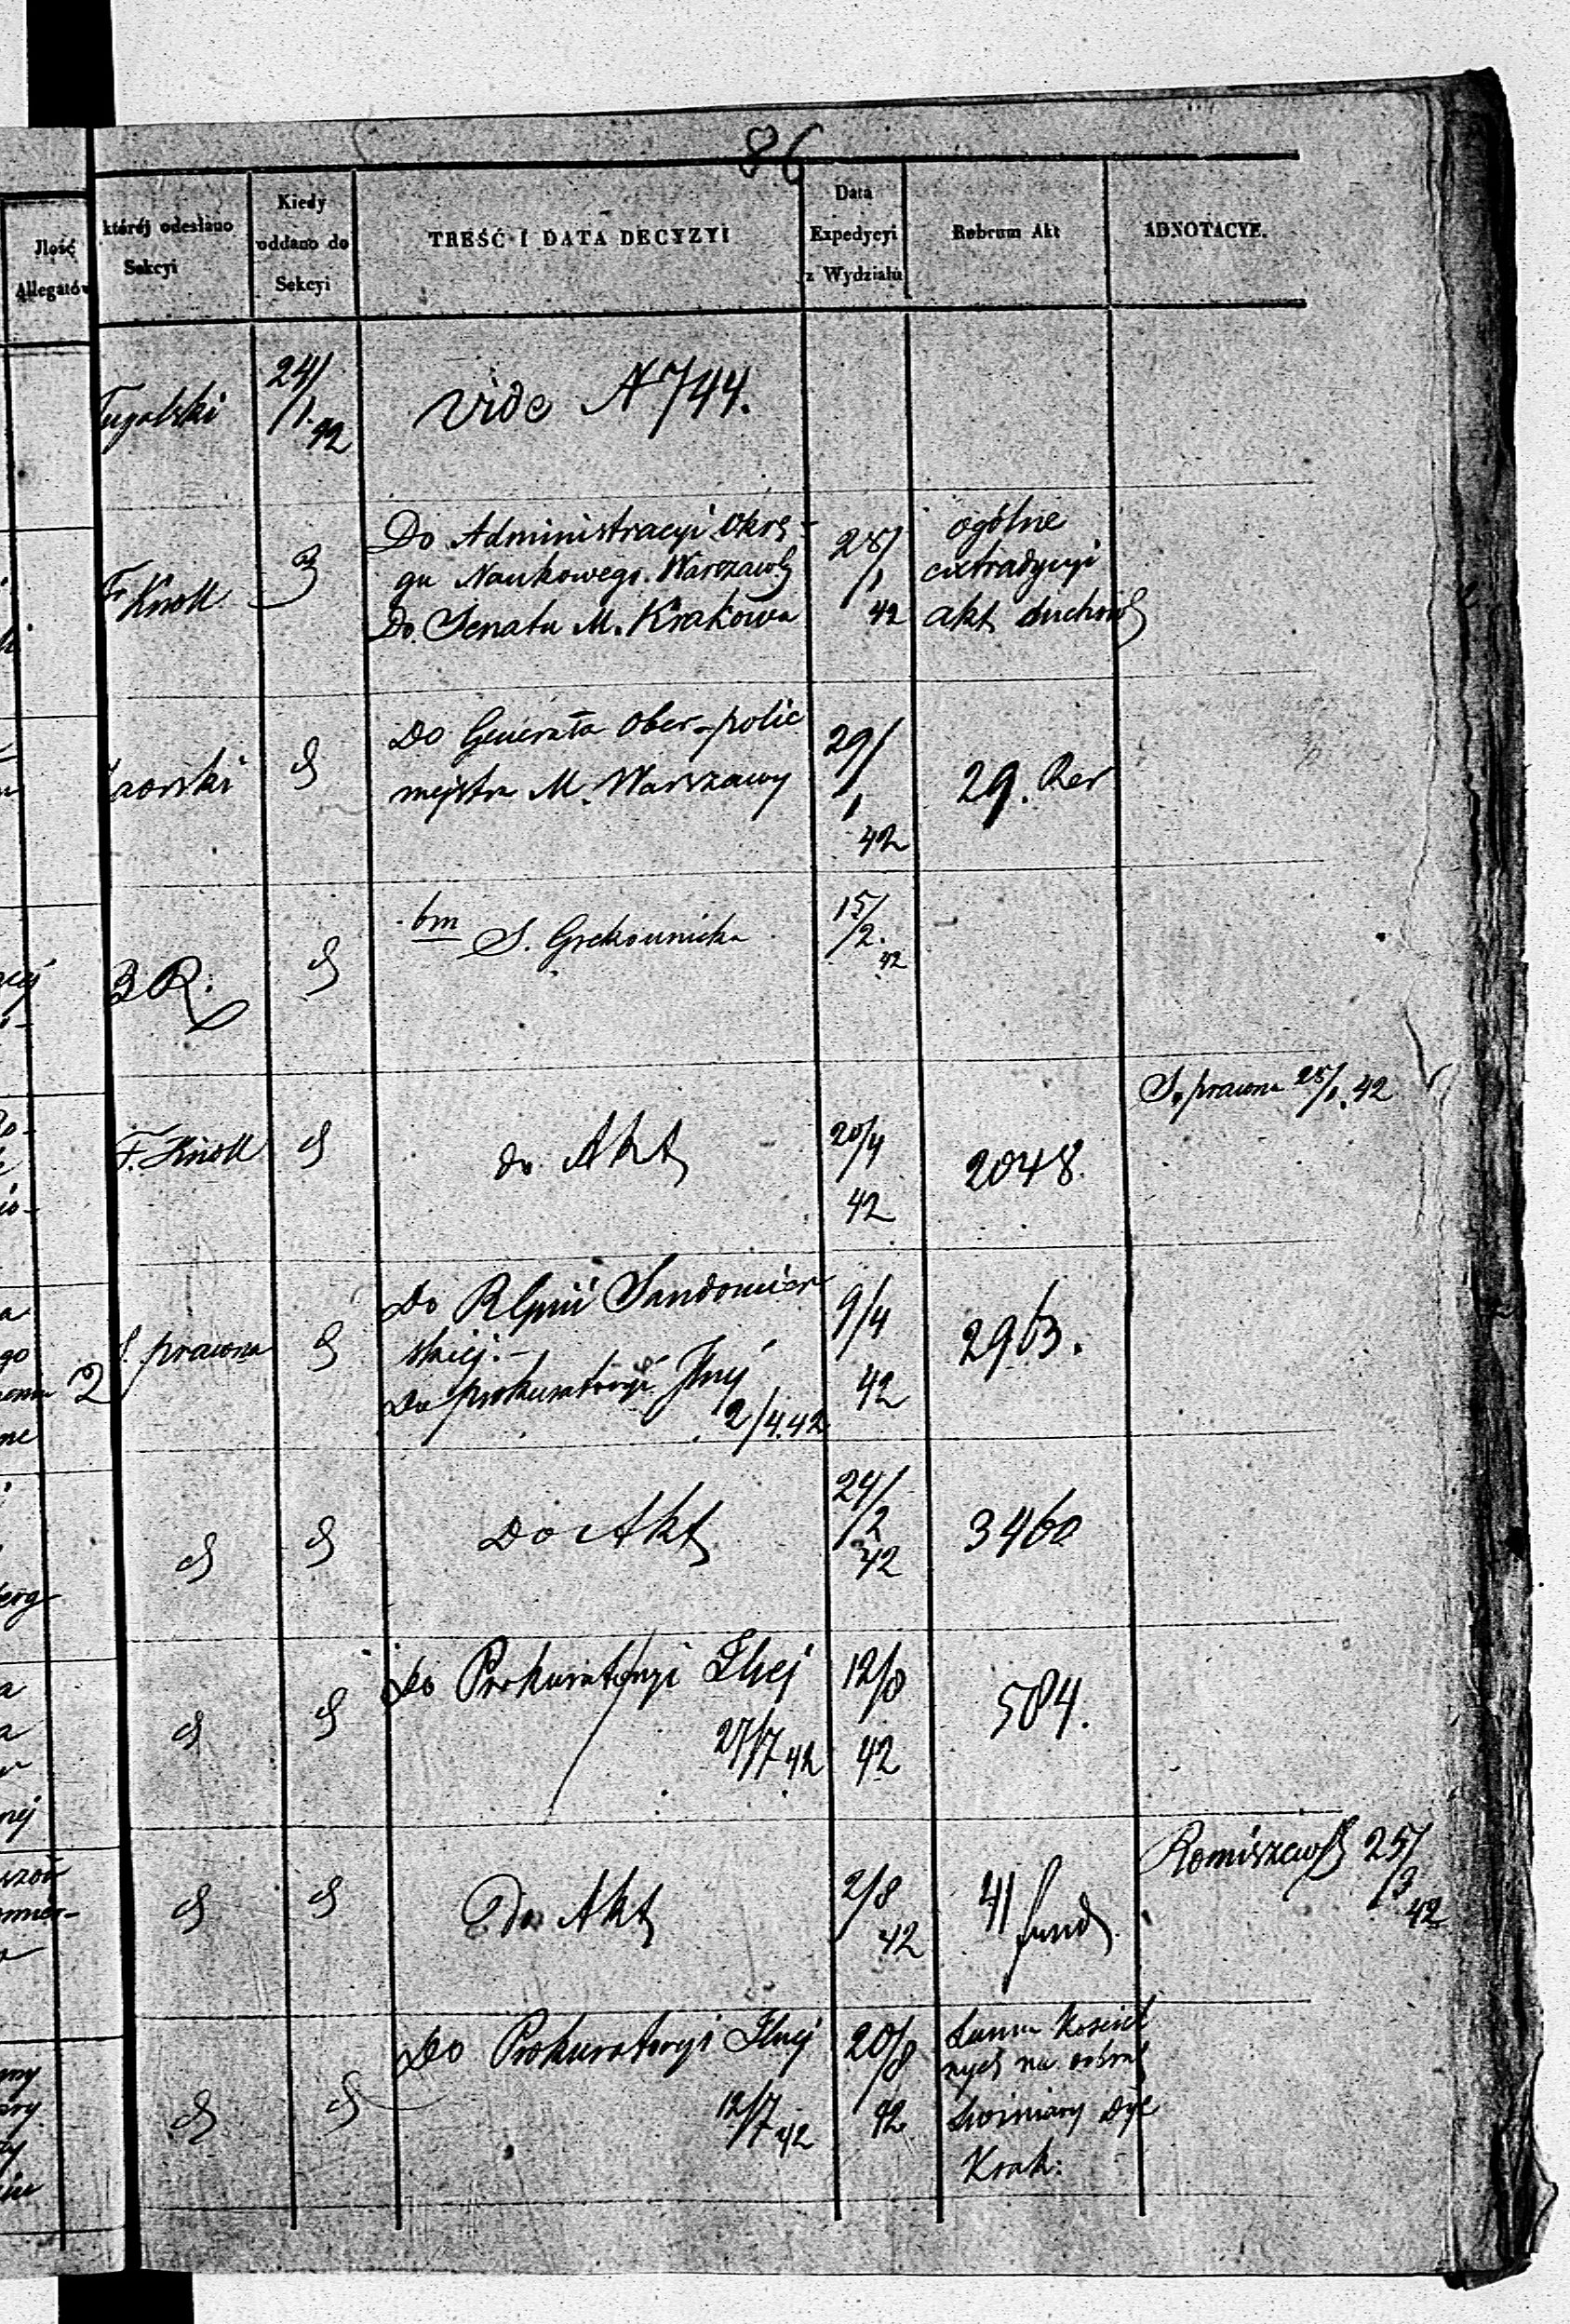 86
Jlość
Allegatów
któréj odesłano
Sekcyi
Kiedy
oddano do
Sekcyi
TREŚĆ I DATA DECYZYI
Data
Expedycyi
z Wydziału
Rubrum Akt
ADNOTACYE.
24/1. 42
vide N 744.
F Knoll
Do Administracyi Okrę-
gu Naukowego Warszaw
Do Senatu M. Krakowa
28/1 42
ogólne
extradycyi
akt duchow
Do Generała Ober-polic
mejstra M. Warszawy
29/1 42
29. Rer
BR.
bm S.
15/2. 42
F. Knoll
do Akt
20/4 42
2048.
S. prawna 25/1. 42
2
S. prawna
Do RGnii Sandomier
skiej.-
Do prokuratoryi Jlnej
2/4.42
9/4 42
2963.
Do Akt
24/2 42
3460
Do Prokuratoryi Jlnej
27/7 42
12/8 42
584.
Do Akt
2/8 42
41 fund
25/3 42
Do Prokuratoryi Jlnej
12/7 42
20/8 42
Summ Kościel
nych na dobrach
Dyec
Krak: